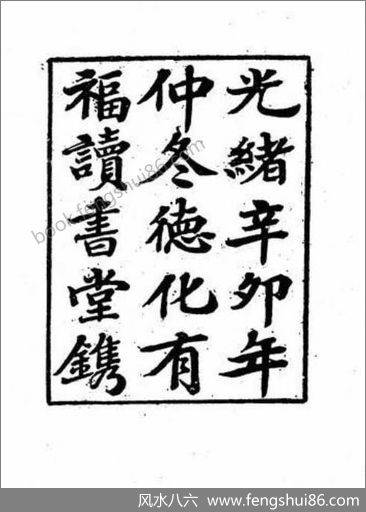 光緒辛卯年
仲冬德化有
福讀書堂鐫
book.fengshui86.com
风水八六 www.fengshui86.com